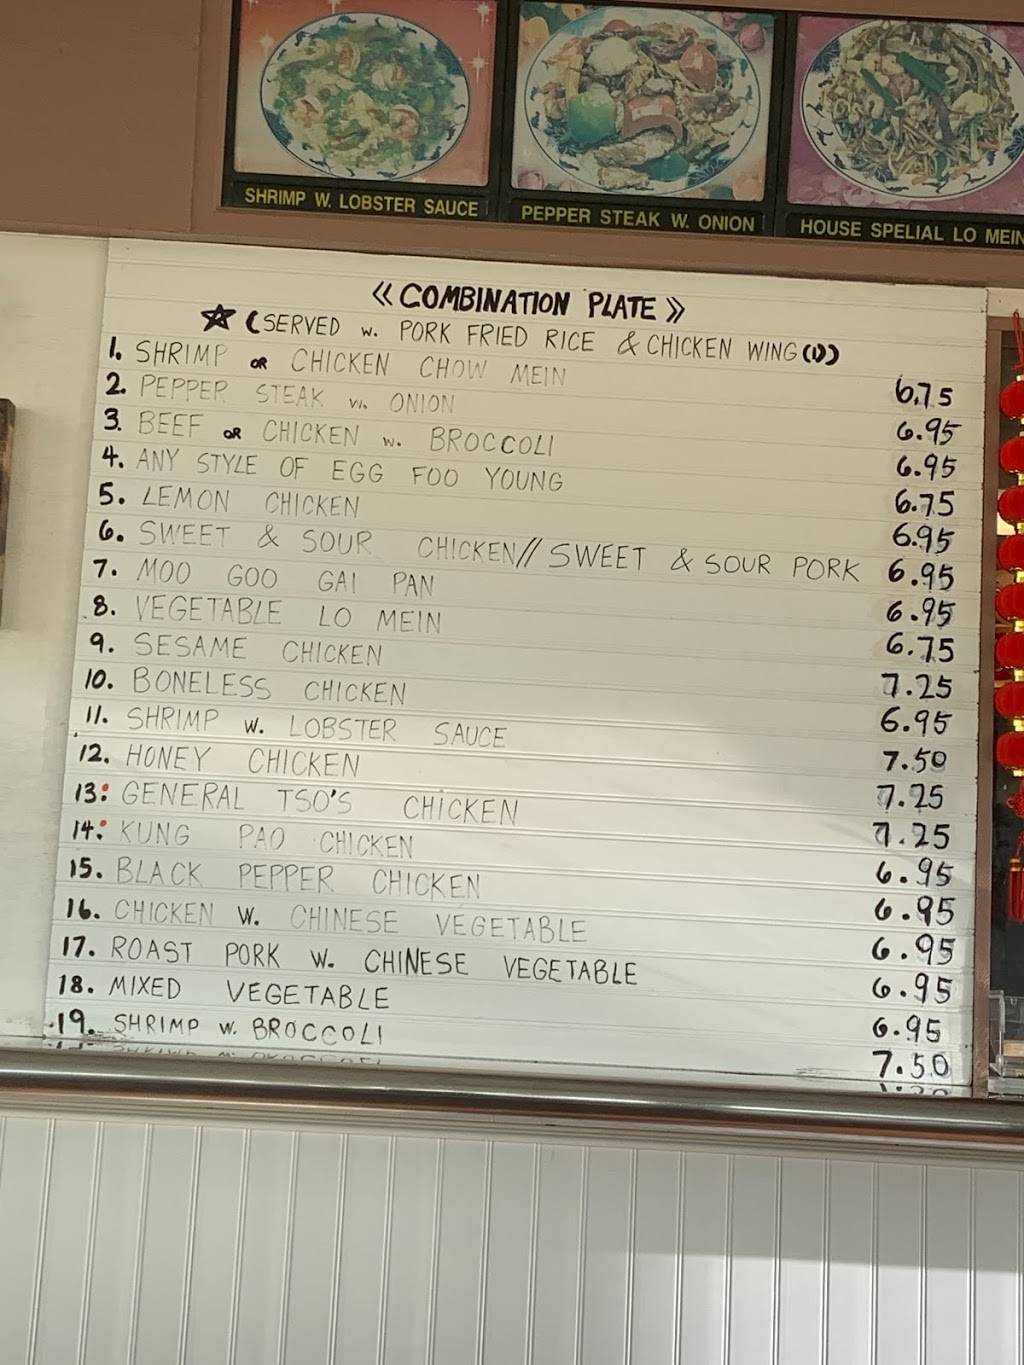 SHRIMP W. LOBSTER SAUCE
PEPPER STEAK W. ONION
HOUSE SPELIAL LO MEIN
《COMBINATION PLATE》
☆ (SERVED w. PORK FRIED RICE & CHICKEN WING (1))
1. SHRIMP OR CHICKEN CHOW MEIN 6.75
2. PEPPER STEAK w. ONION 6.95
3. BEEF OR CHICKEN w. BROCCOLI 6.95
4. ANY STYLE OF EGG FOO YOUNG 6.75
5. LEMON CHICKEN 6.95
6. SWEET & SOUR CHICKEN// SWEET & SOUR PORK 6.95
7. MOO GOO GAI PAN 6.95
8. VEGETABLE LO MEIN 6.75
9. SESAME CHICKEN 7.25
10. BONELESS CHICKEN 6.95
11. SHRIMP w. LOBSTER SAUCE 7.50
12. HONEY CHICKEN 7.25
13: GENERAL TSO'S CHICKEN 7.25
14: KUNG PAO CHICKEN 6.95
15. BLACK PEPPER CHICKEN 6.95
16. CHICKEN W. CHINESE VEGETABLE 6.95
17. ROAST PORK W. CHINESE VEGETABLE 6.95
18. MIXED VEGETABLE 6.95
19. SHRIMP W. BROCCOLI 7.50